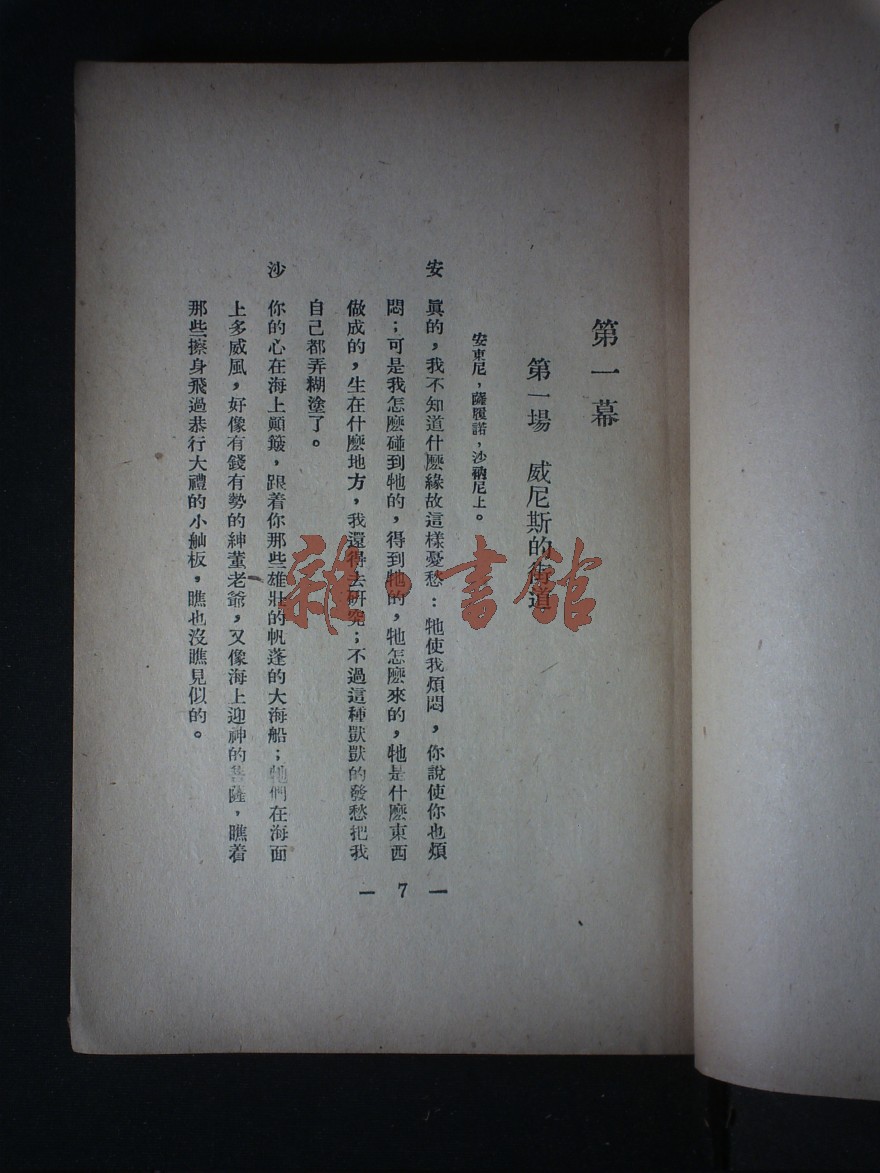 第一幕
第一場　威尼斯的街道
安東尼，薩履諾，沙衲尼上。
安　眞的，我不知道什麽緣故這樣憂愁：牠使我煩悶，你說使你也煩
悶；可是我怎麽碰到牠的，得到牠的，牠怎麽來的，牠是什麽東西
做成的，生在什麽地方，我還得去研究；不過這種獃獃的發愁把我
自己都弄糊塗了。
沙　你的心在海上顚簸，跟着你那些雄壯的帆蓬的大海船；牠們在海面
上多威風，好像有錢有勢的紳董老爺，又像海上迎神的菩薩，瞧着
那些擦身飛過恭行大禮的小舢板，瞧也沒瞧見似的。
— 7 —
雜·書館